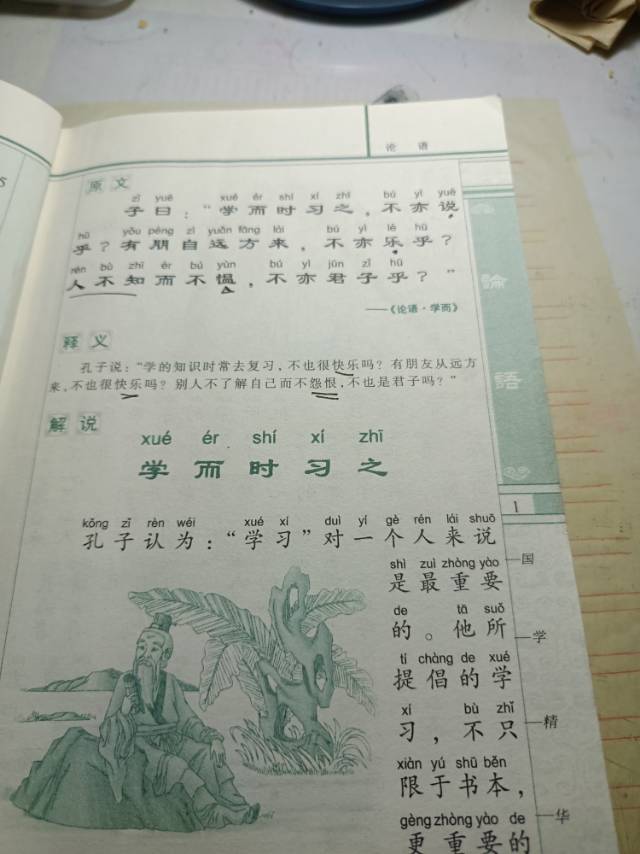 5
论语
原文
zǐ yuē xué ér shí xí zhī bú yì yuè
子曰：“学而时习之，不亦说
hū yǒu péng zì yuǎn fāng lái bú yì lè hū
乎？有朋自远方来，不亦乐乎？
rén bù zhī ér bú yùn bú yì jūn zǐ hū
人不知而不愠，不亦君子乎？”
——《论语·学而》
释义
孔子说：“学的知识时常去复习，不也很快乐吗？有朋友从远方
来，不也很快乐吗？别人不了解自己而不怨恨，不也是君子吗？”
解说
xué ér shí xí zhī
学而时习之
kǒng zǐ rèn wéi xué xí duì yí gè rén lái shuō
孔子认为：“学习”对一个人来说
shì zuì zhòng yào
是最重要
de tā suǒ
的。他所
tí chàng de xué
提倡的学
xí bù zhǐ
习，不只
xiàn yú shū běn
限于书本，
gèng zhòng yào de
更重要的
論語
1
国
学
精
华